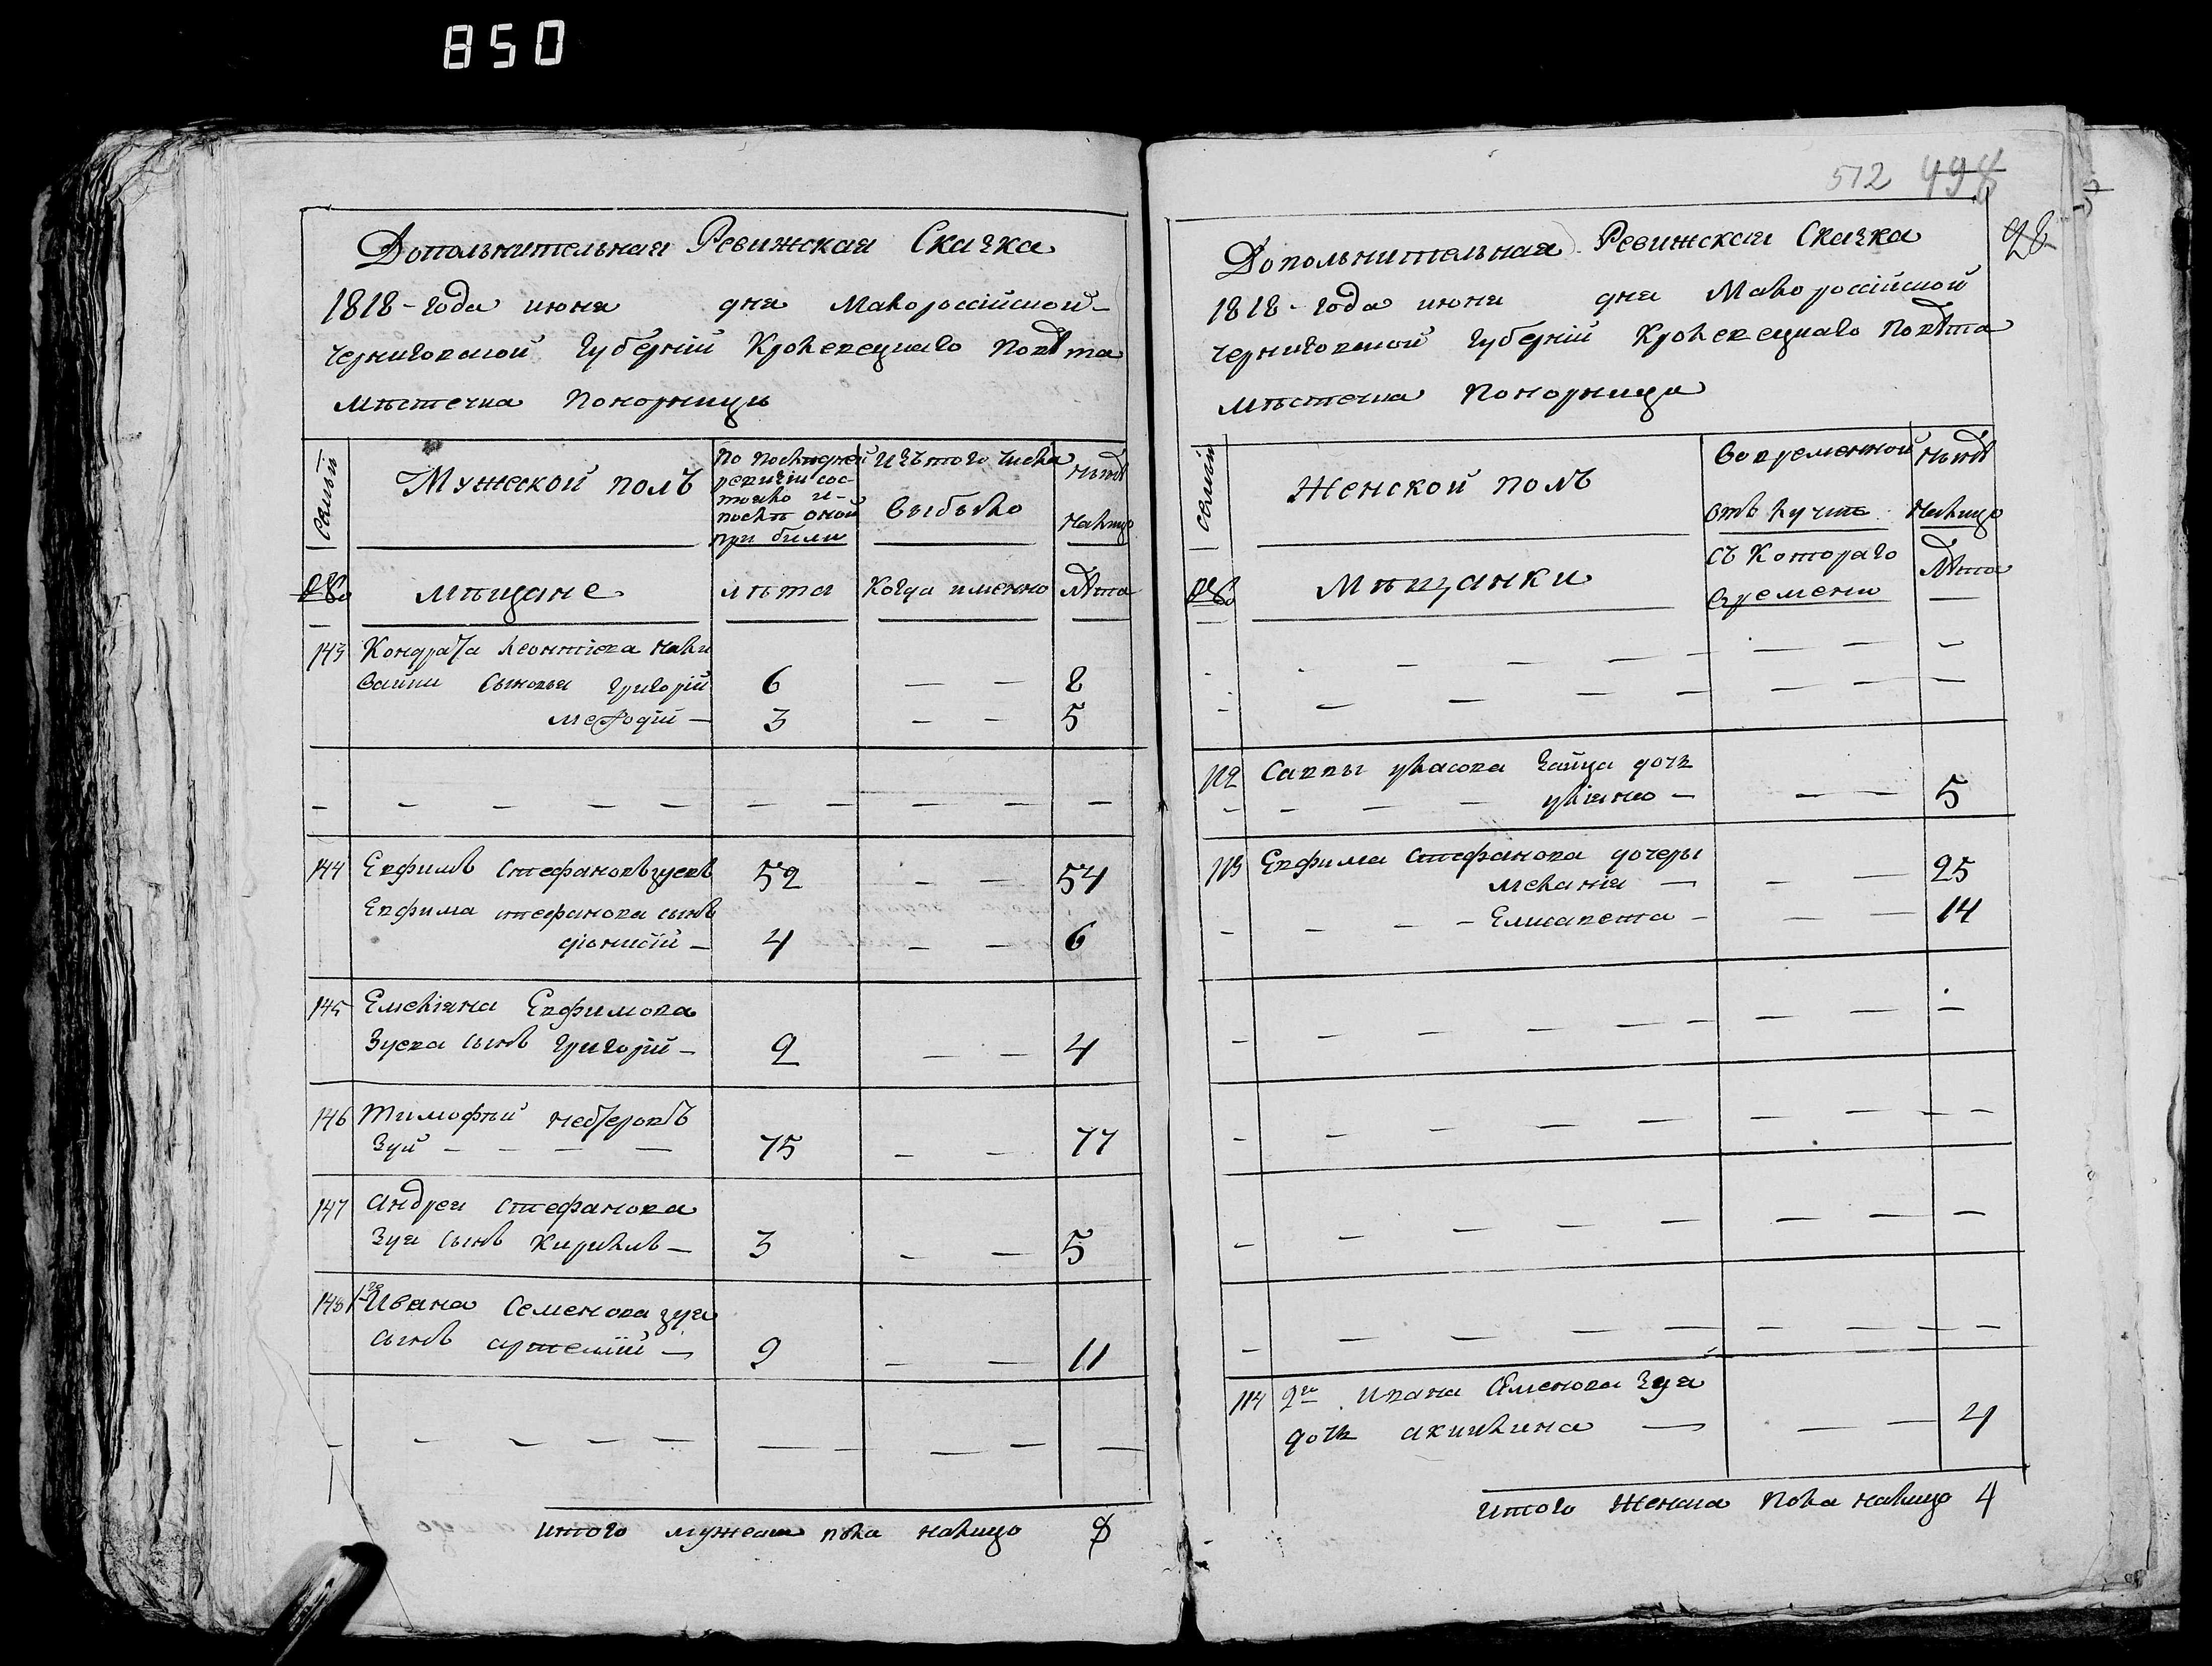 850
Допольнительная Ревижская Сказка
1818-года июня дня Малороссійской-
Черниговской Губерніи Кролевецкаго Повѣта
мѣстечка Понорницы
семьи
Мужеской полъ
по послѣдней
ревизіи сос-
тояло и-
послѣ оной
прибыли
Изъ того числа
выбыло
нынѣ
налицо
№
мѣщане
лѣта
Когда именно
лѣта
143 Кондрата Леонтіева
сыновья григорій 6 — — 8
мефодій — 3 — — 5
144 Евфимъ Стефановъ зуевъ 52 — — 54
Евфима стефанова сынъ
діонисій — 4 — — 6
145 Емеліяна Евфимова
Зуева сынъ григорій — 2 — — 4
146 Тимофѣй
Зуй — — — — 75 — — 77
147 Андрея стефанова
Зуя сынъ Кирилъ — 3 — — 5
148 1го Ивана Семенова зуя
сынъ артемій — 9 — — 11
итого мужеска пола налицо 8
512 498
98
Допольнительная Ревижская Сказка
1818-года июня дня Малороссійской
Черниговской Губерніи Кролевецкаго Повѣта
мѣстечка Понорници
семьи
Женской полъ
Во временной
отлучкѣ
съ Котораго
времени
нынѣ
налицо
лѣта
№
Мѣщанки
112 Саввы власова Зайца дочь
уліяна — — — 5
113 Евфима Стефанова дочеры
меланія — — — 25
— — — — Елисавета — — — 14
114 2го Ивана Семенова Зуя
дочь акилина — — — 4
итого Женска пола налицо 4